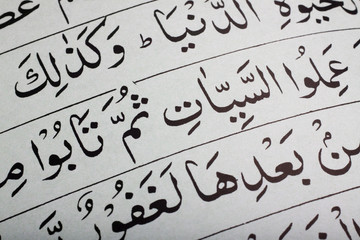 لْحَيٰوةِ الدُّنْيَا ؕ وَكَذٰلِكَ
عَمِلُوا السَّيِّاٰتِ ثُمَّ تَابُوْا مِ
مِنْۢ بَعْدِهَا لَغَفُوْرٌ